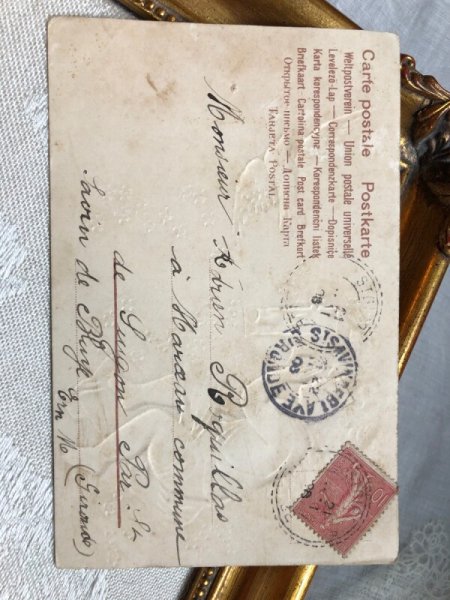 Carte postale Postkarte
Weltpostverein — Union postale universelle
Levelező-Lap — Correspondenzkarte — Dopisnice
Karta korespondencyjna — Korespondenčni listek
Brefkaart Cartolina postale Post card Brefkort
Открытое письмо — Дописна Карта
TARJETA POSTAL
Monsieur Adrien Roquillas
à Marceau commune
de St
Savin de Blaye (Gironde)
ST SAVIN-DE-BLAYE GIRONDE
10